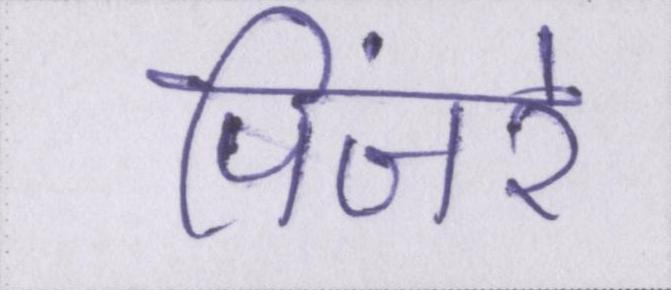 पिंजरे